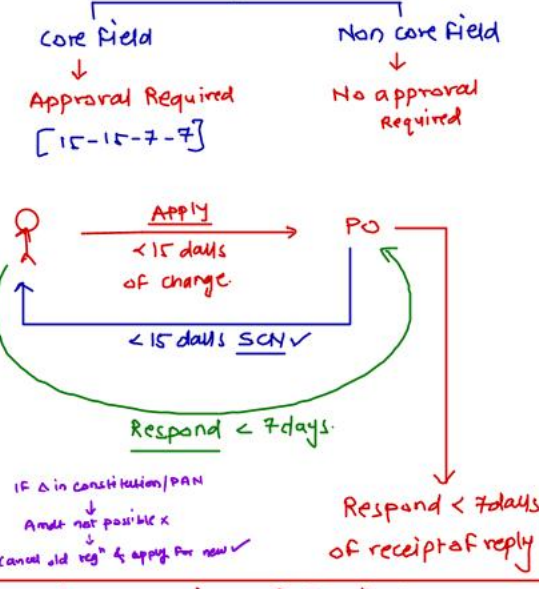 Core Field
Non core Field
Approval Required
No approval
Required
[15-15-7-7]
Apply
PO
<15 days
of change.
<15 days SCN ✓
Respond < 7days.
IF Δ in constitution/PAN
Amdt not possible x
cancel old regⁿ & apply for new ✓
Respond < 7days
of receipt of reply